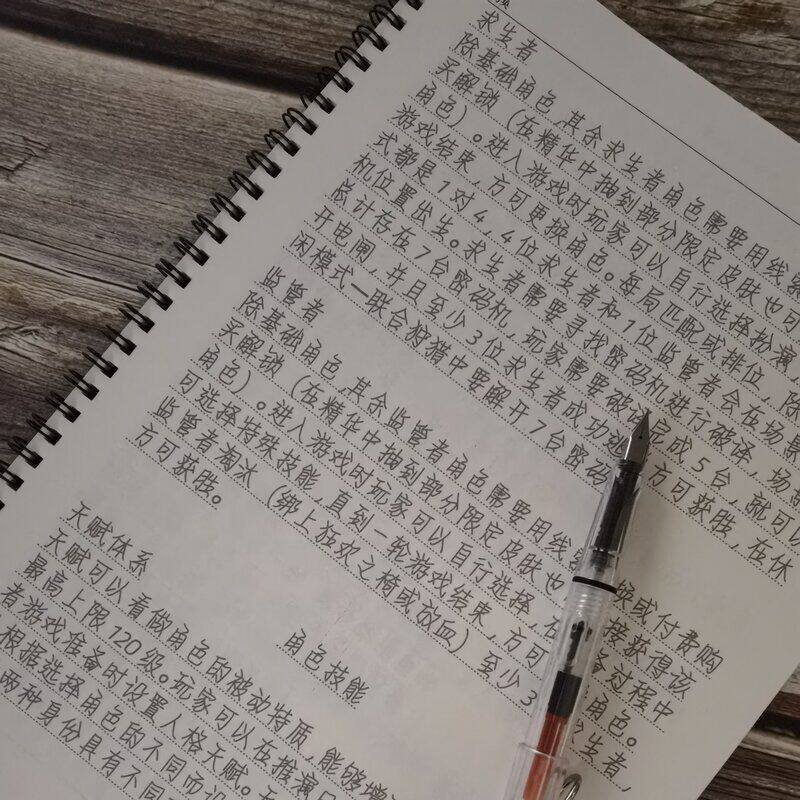 换
求生者
除基础角色,其余求生者角色需要用线索
买解锁(在精华中抽到部分限定皮肤也可
角色)。进入游戏时玩家可以自行选择扮演
游戏结束,方可更换角色。每局匹配或排位,除
式都是1对4,4位求生者和1位监管者会在场景
机位置出生。求生者需要寻找密码机进行破译,场
总计存在7台密码机,玩家需要破译完成5台,就可以
开电闸,并且至少3位求生者成功逃 方可获胜,在休
闲模式—联合狩猎中要解开7台密码
监管者
除基础角色,其余监管者角色需要用线索 换或付费购
买解锁(在精华中抽到部分限定皮肤也 接获得该
角色)。进入游戏时玩家可以自行选择, 备过程中
可选择特殊技能,直到一轮游戏结束,方可 角色。
监管者淘汰(绑上狂欢之椅或放血)至少3 求生者,
方可获胜。
角色技能
天赋体系
天赋可以看做角色的被动特质,能够增
最高上限120级。玩家可以在推演
者游戏准备时设置人格天赋。
根据选择角色的不同而设
两种身份具有不同